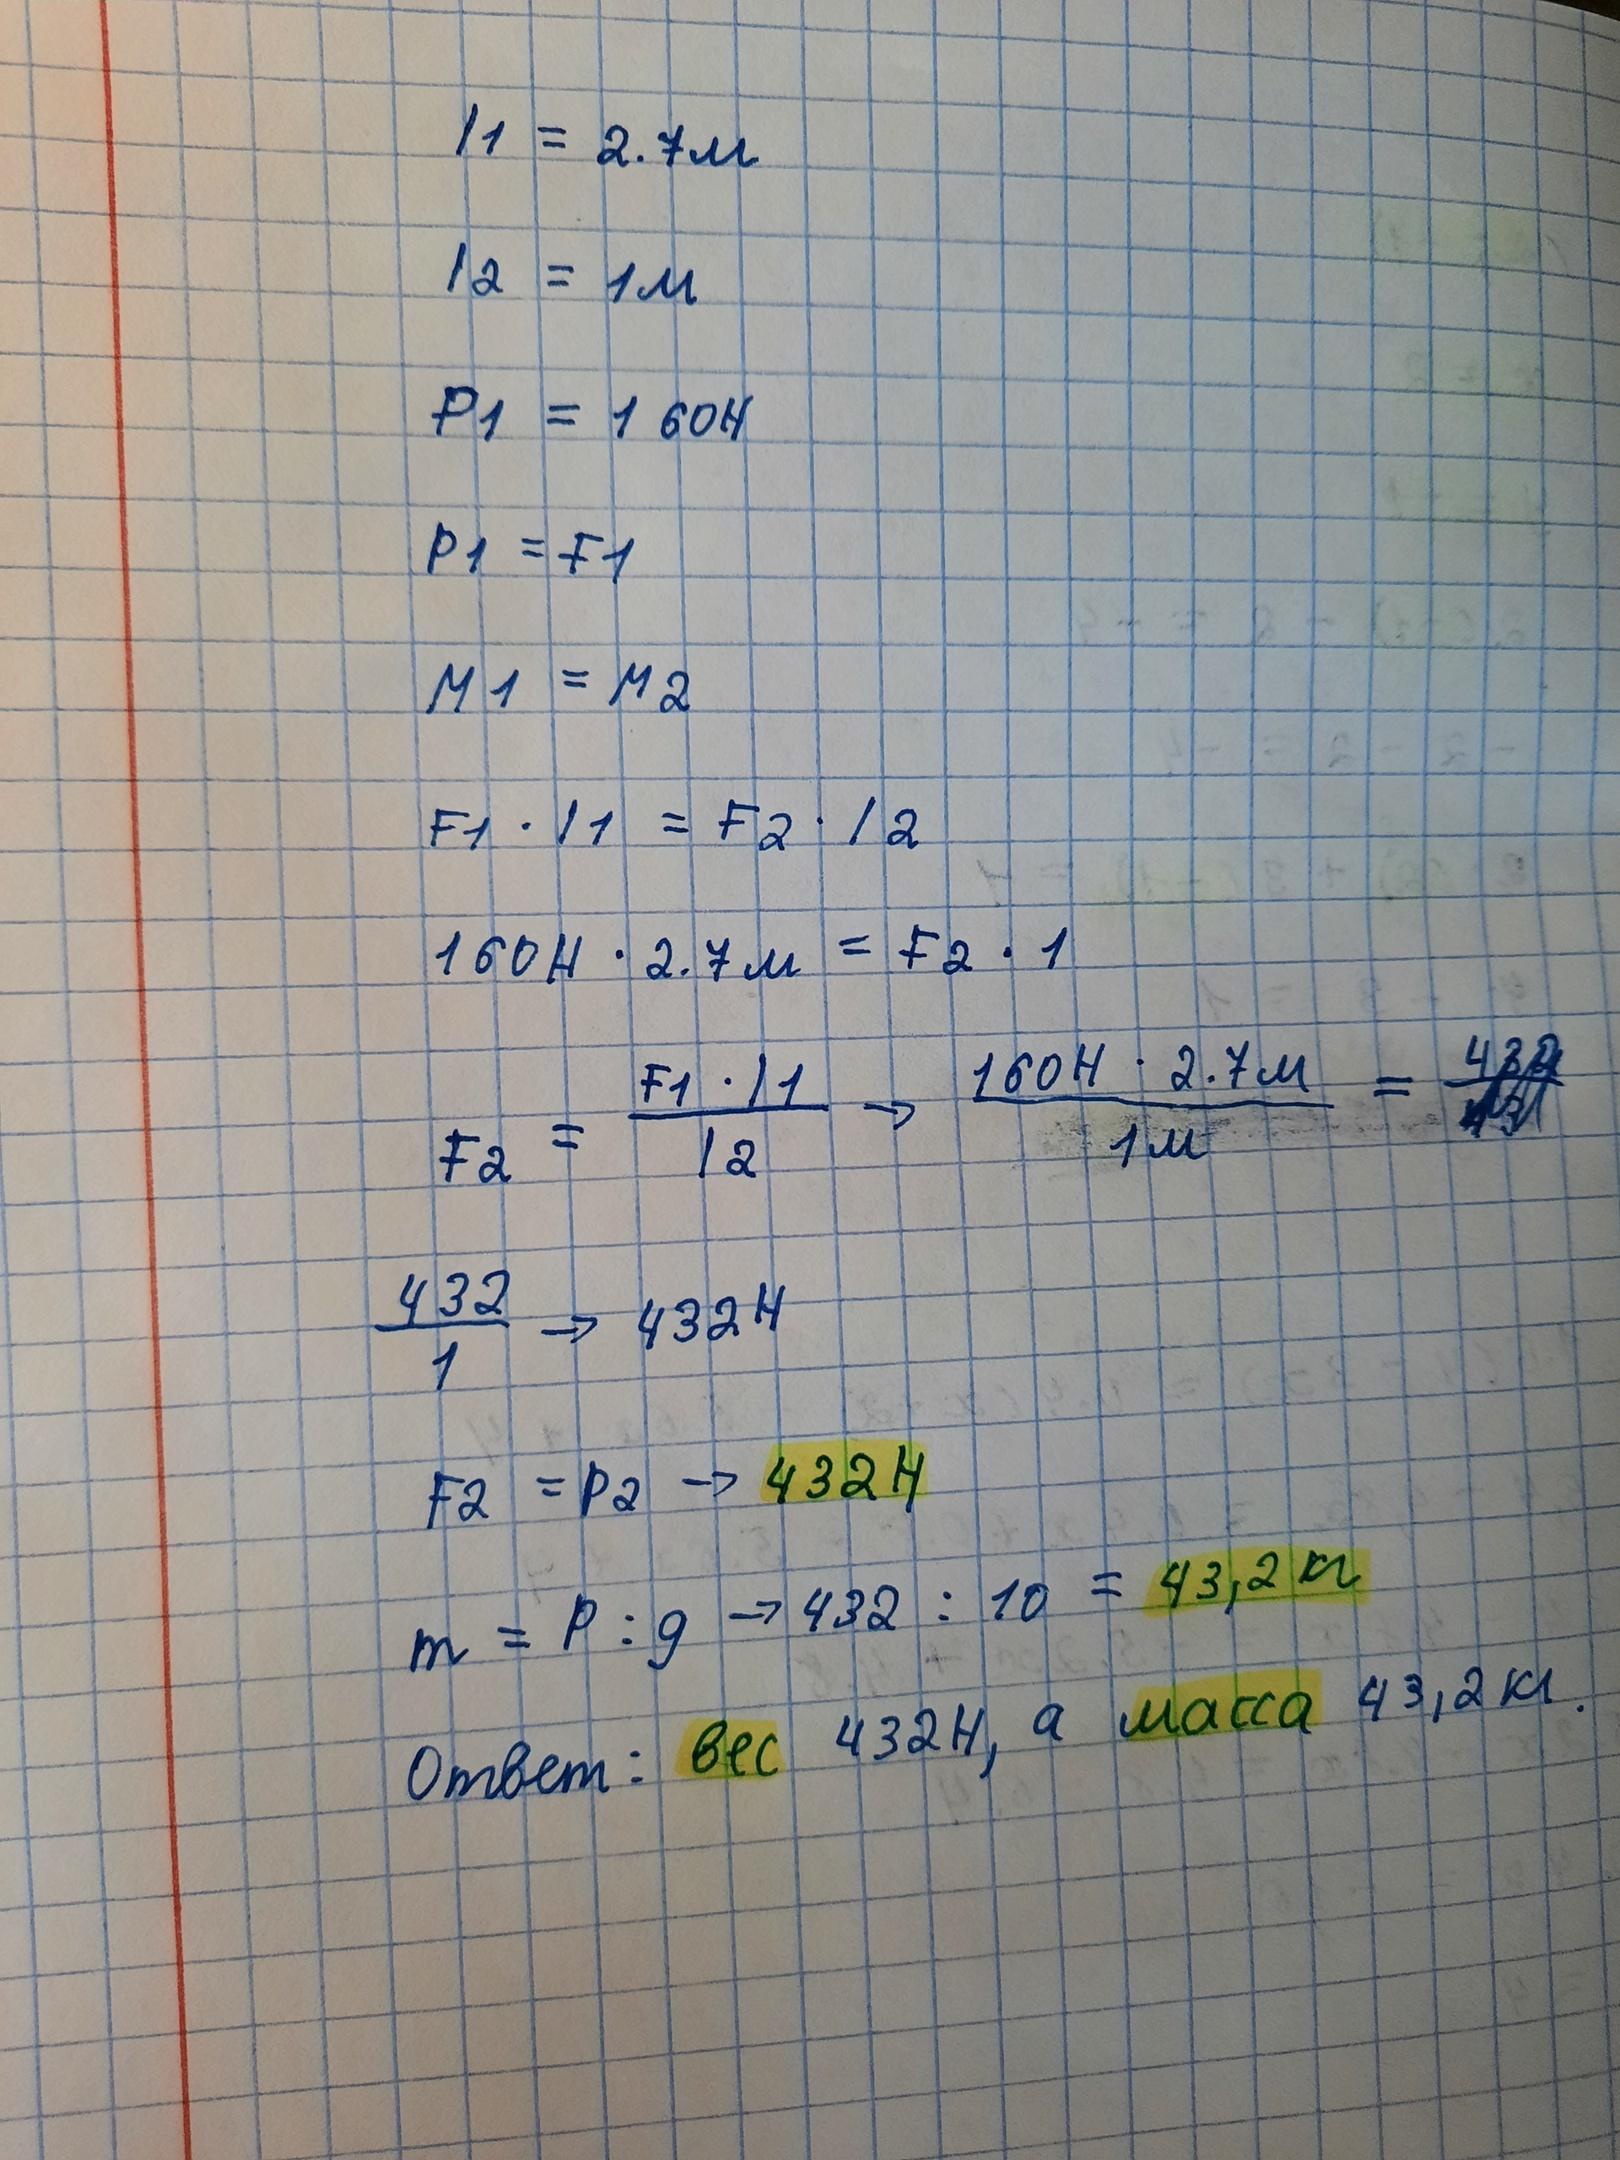 l1 = 2.7м
l2 = 1м
P1 = 160Н
P1 = F1
М1 = М2
F1 · l1 = F2 · l2
160Н · 2.7м = F2 · 1
F2 = F1 · l1 / l2 → 160Н · 2.7м / 1м = 432
432 / 1 → 432Н
F2 = P2 → 432Н
m = P : g → 432 : 10 = 43,2 кг
Ответ: вес 432Н, а масса 43,2 кг.